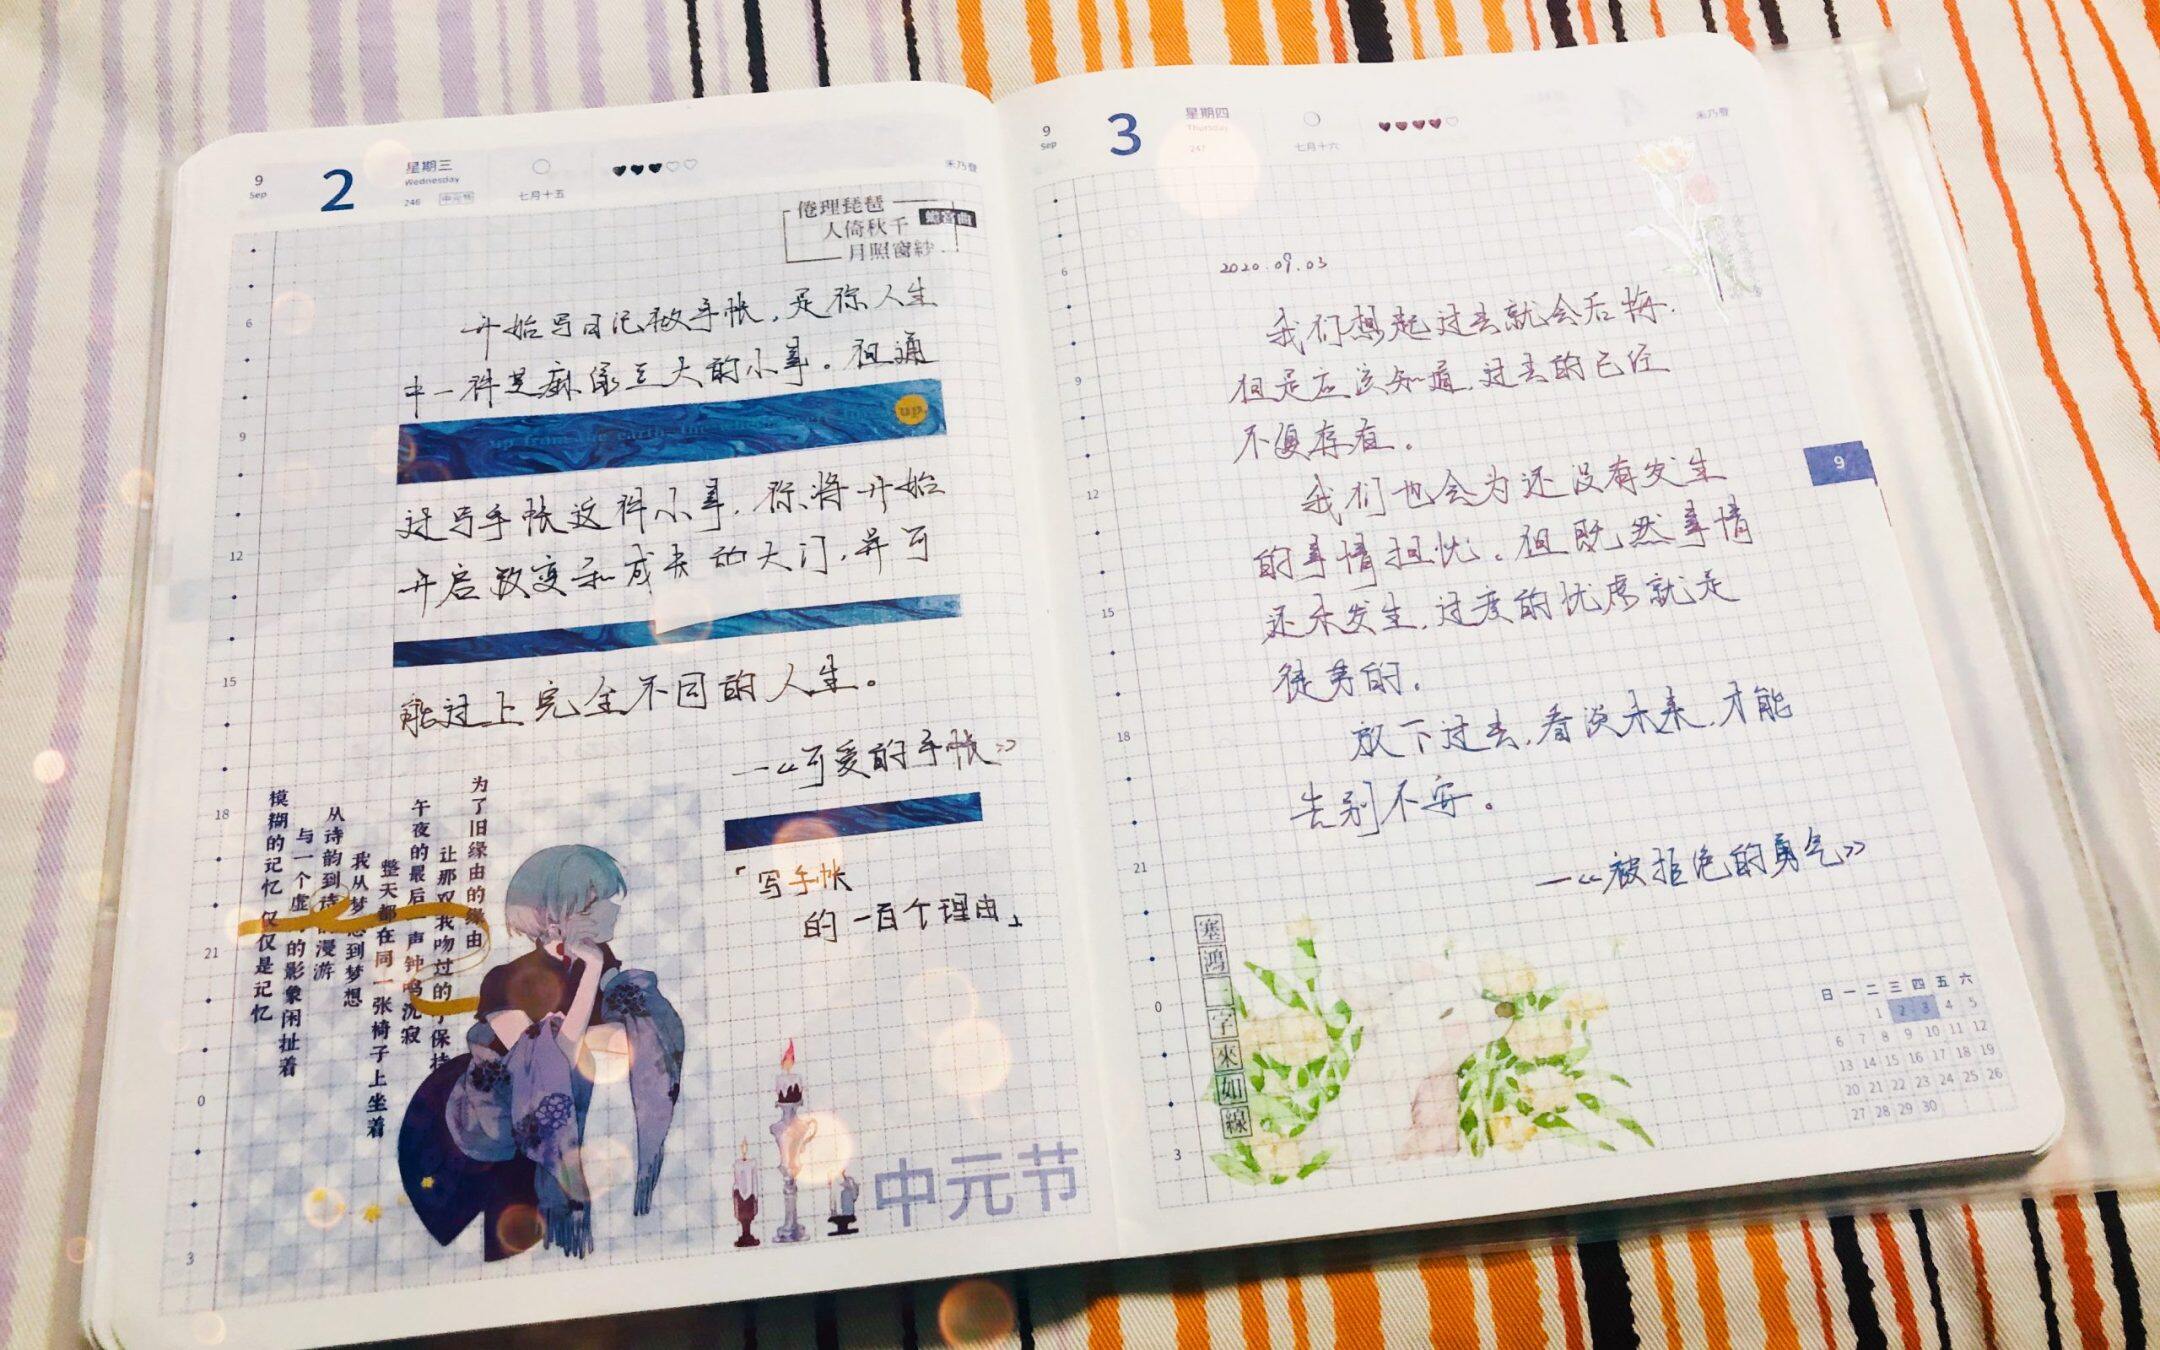 9
Sep
2
星期三
Wednesday
246 中元节
七月十五
禾乃登
倦理琵琶
人倚秋千
月照窗紗
开始写日记做手帐，是你人生
中一件芝麻绿豆大的小事。但通
up
过写手帐这件小事，你将开始
开启改变和成长的大门，并可
能过上完全不同的人生。
——《可爱的手帐》
「写手帐
的一百个理由」
为了旧缘由的缘由
让那双我吻过的
保持
午夜的最后一声钟鸣沉寂
整天都在同一张椅子上坐着
我从梦想到梦想
从诗韵到诗的漫游
与一个虚的影象闲扯着
模糊的记忆 仅仅是记忆
中元节
6
9
12
15
18
21
0
3
9
Sep
3
星期四
Thursday
247
七月十六
禾乃登
2020.09.03
我们想起过去就会后悔.
但是应该知道，过去的已经
不复存在。
我们也会为还没有发生
的事情担忧。但既然事情
还未发生，过度的忧虑就是
徒劳的。
放下过去，看淡未来，才能
告别不安。
——《被拒绝的勇气》
塞鴻一字來如線
6
9
12
15
18
21
0
3
9
日 一 二 三 四 五 六
1 2 3 4 5
6 7 8 9 10 11 12
13 14 15 16 17 18 19
20 21 22 23 24 25 26
27 28 29 30